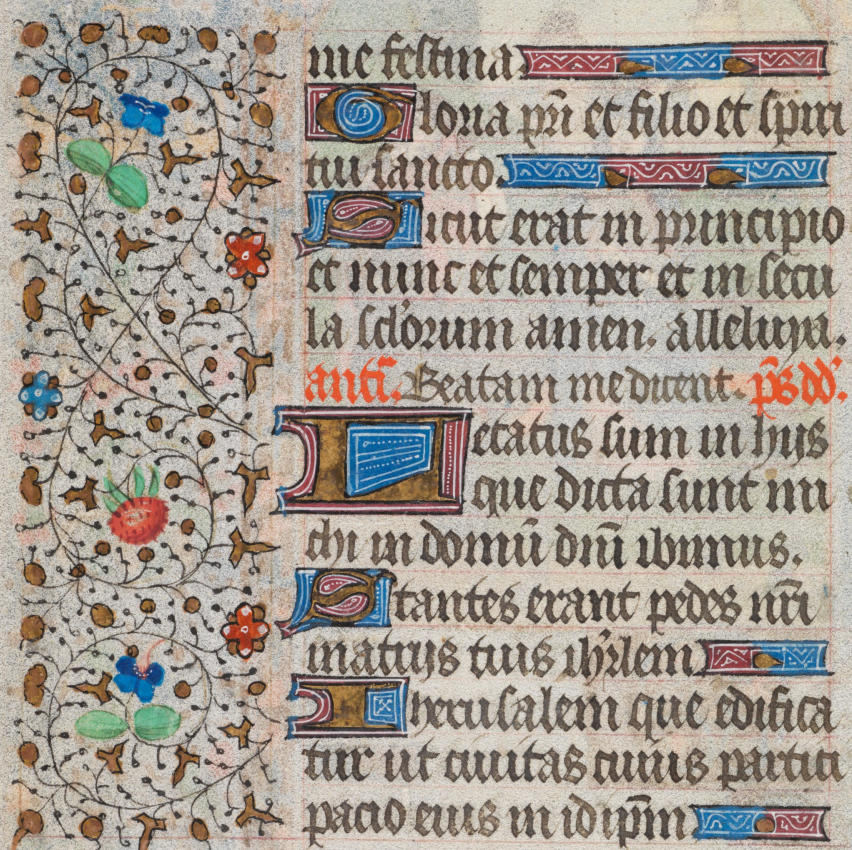 me festina
Gloria pr̄i et filio et spiri
tui sancto.
Sicut erat in principio
et nunc et semper et in secu
la scl'orum amen. alleluya.
antī. Beatam me dicent. p̄s dd'.
Letatus sum in hijs
que dicta sunt mi
chi in domū dn̄i ibimus.
Stantes erant pedes nr̄i
in atrijs tuis ihr̄lem
Iherusalem que edifica
tur ut ciuitas cuius partici
pacio eius in id ip̄m